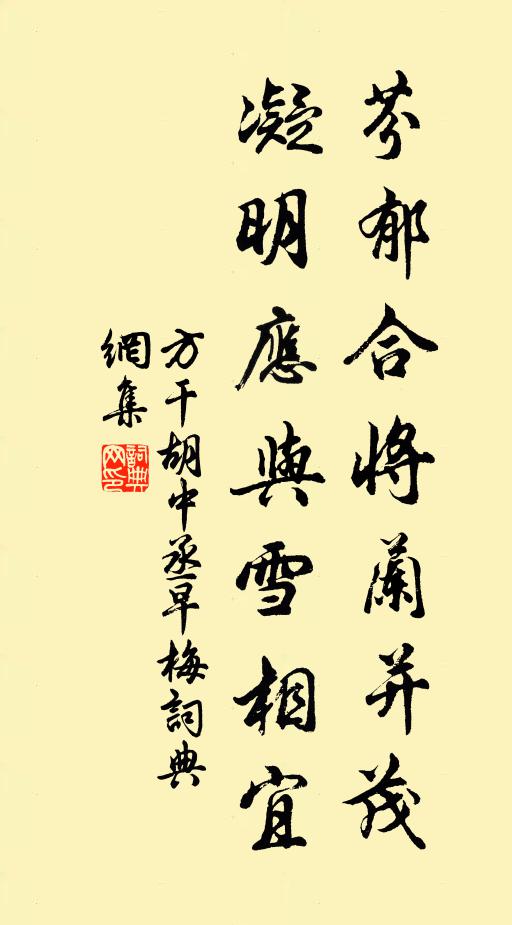 芬郁合將蘭并茂
凝明應與雪相宜
方干胡中丞早梅詞典
網集
詞典
网印